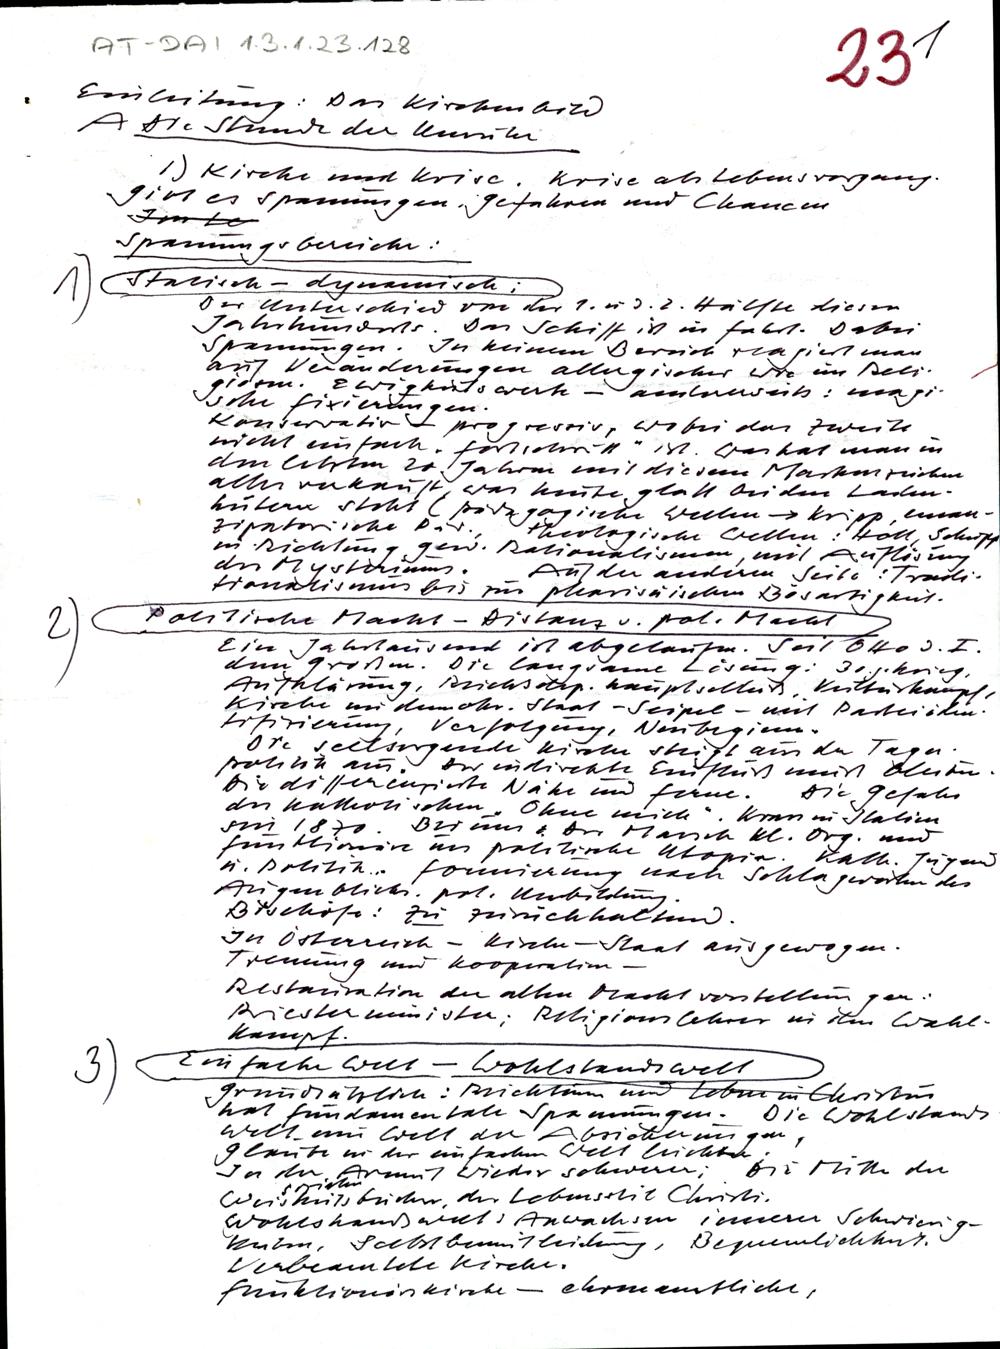 AT-DAI 1.3.1.23.128
23 1
Einleitung: Das Kirchenbild
A Die Stunde der Unruhe
1) Kirche und Krise. Krise als Lebensvorgang.
gibt es Spannungen, Gefahren und Chancen
Spannungsbereiche:
1) Statisch – dynamisch:
Der Unterschied von der 1. u. d. 2. Hälfte dieses
Jahrhunderts. Das Schiff ist in Fahrt. Dabei
Spannungen. In keinem Bereich reagiert man
auf Veränderungen allergischer wie im Reli-
giösen. Ewigkeitswerte – andrerseits: magi-
sche Fixierungen.
Konservativ – progressiv, wobei das zweite
nicht einfach "Fortschritt" ist. Was hat man in
den letzten 20 Jahren mit diesem Markenzeichen
alles verkauft, was heute glatt bei den Laden-
hütern steht (pädagogische Wellen → Kripp, eman-
zipatorische Päd., Theologische Wellen: Holl, Schupp
in Richtung gew. Rationalismen, mit Auflösung
des Mysteriums. Auf der anderen Seite: Tradi-
tionalismus bis zur pharisäischen Bösartigkeit.
2) Politische Macht – Distanz v. pol. Macht
Ein Jahrtausend ist abgelaufen. Seit Otto d. I.
dem Großen. Die langsame Lösung: 30. j. krieg,
Aufklärung, Reichsdep. hauptschluß, Kulturkampf,
Kirche im demokr. Staat – Seipel – mit Parteiiden-
tifizierung, Verfolgung, Neubeginn.
Die seelsorgende Kirche steigt aus der Tages-
politik aus. Der indirekte Einfluß muß bleiben.
Die differenzierte Nähe und Ferne. Die Gefahr
des katholischen "Ohne mich". Krass in Italien
seit 1870. Bei uns: Der Marsch kl. Org. und
Funktionäre ins politische Utopia. Kath. Jugend
u. Politik. Formierung nach Schlagworten des
Augenblicks. pol. Unbildung.
Bischöfe: zu zurückhaltend.
In Österreich – Kirche – Staat ausgewogen.
Trennung und Kooperation –
Restauration der alten Machtvorstellungen:
Priesterminister; Religionslehrer in den Wahl-
kampf.
3) Einfache Welt – Wohlstandswelt
Grundsätzlich: Reichtum und Leben in Christus
hat fundamentale Spannungen. Die Wohlstands-
welt eine Welt der Absicherungen,
Glaube in der einfachen Welt leichter.
In der Armut wieder schwerer; Die Mitte der
Weisheitsbücher, der Lebensstil Christi.
Wohlstandswelt: Anwachsen innerer Schwierig-
keiten, Selbstbemitleidung, Bequemlichkeit.
Verbeamtete Kirche.
Funktionärskirche – ehrenamtliche,